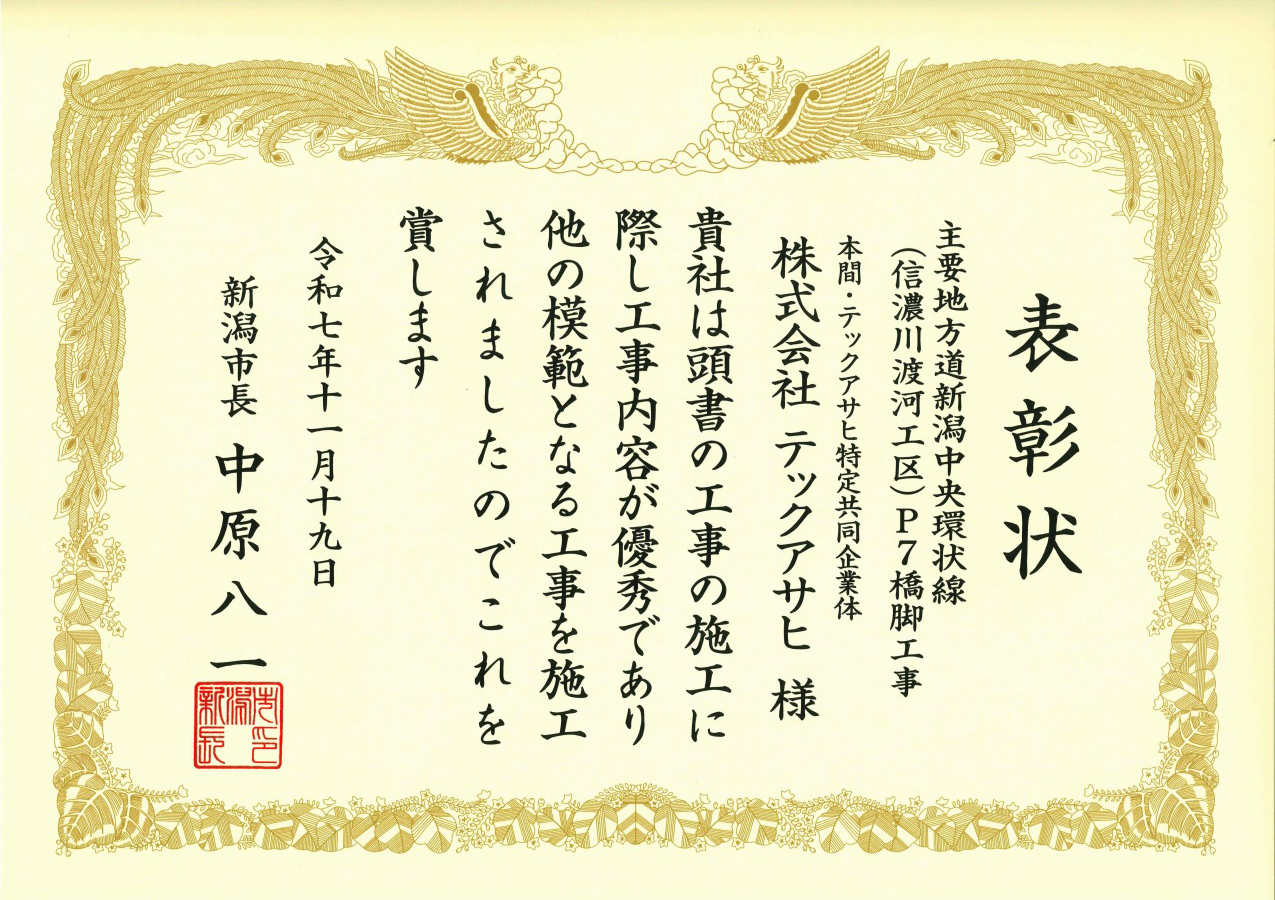 表彰状
主要地方道新潟中央環状線
（信濃川渡河工区）Ｐ７橋脚工事
本間・テックアサヒ特定共同企業体
株式会社 テックアサヒ 様
貴社は頭書の工事の施工に
際し工事内容が優秀であり
他の模範となる工事を施工
されましたのでこれを
賞します
令和七年十一月十九日
新潟市長 中原八一
新潟市長印